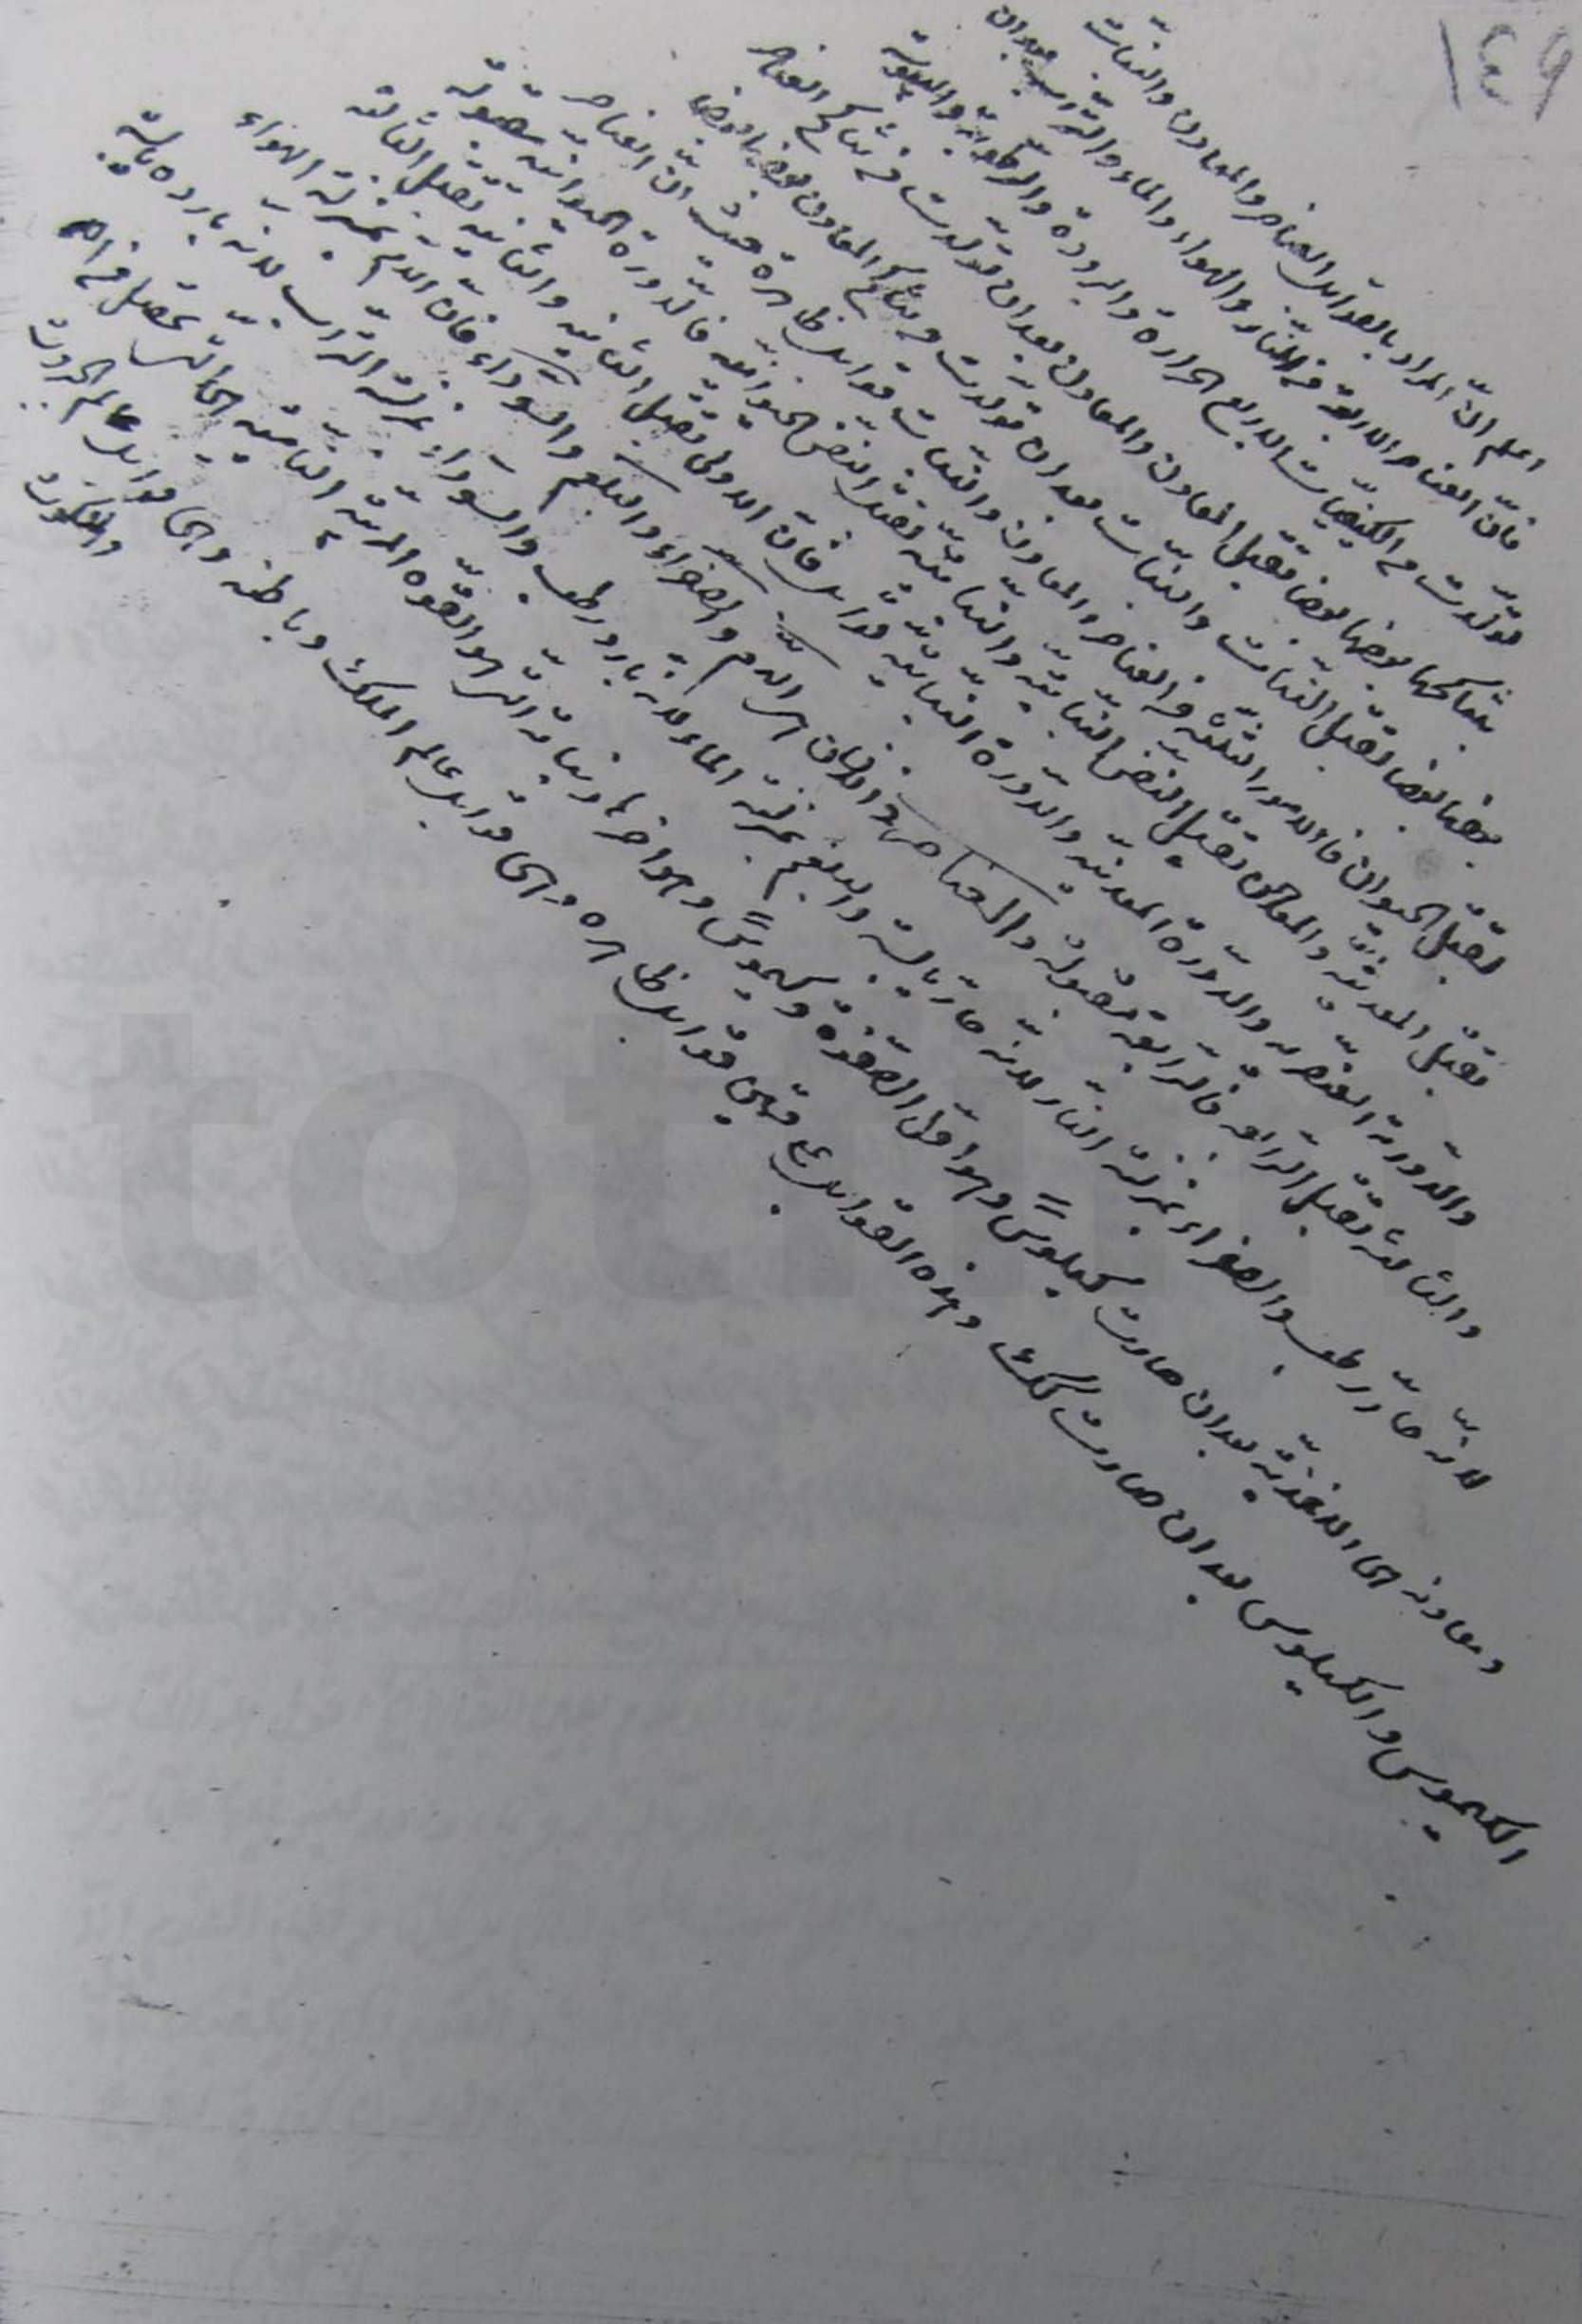 ١٤٩
اعلم انّ المراد بالقوابل العناصر والمعادن والنّبات
فانّ العناصر الاربعة من النّار والهواء والماء والتّراب بعد ان
تولّدت من الكيفيّات الاربع الحرارة والبرودة والرّطوبة واليبوسة
بتناكحها بعضها بعضا تقبل المعادن والمعادن بعد ان تولّدت من تناكح العناصر
بعضها بعضا تقبل النّبات والنّبات بعد ان تولّدت من تناكح المعادن بعضها بعض
تقبل الحيوان فالامور الثلثة من العناصر والمعادن والنّبات قوابل ظاهرة حيث انّ العناصر
تقبل المعدنيّة والمعادن تقبل النفس النّباتيّة والنّباتيّة تقبل النفس الحيوانيّة فالدّورة الحيوانيّة مقبولة
والدّورة العنصريه والدّورة المعدنيّه والدّورة النباتيّة قوابل فانّ الاولى تقبل الثانيه والثانيه تقبل الثالثة
والثالثه تقبل الرّابعة فالرّابعة مقبولة والعناصر فى الانسان هى الدّم والصفراء والبلغم والسّوداء فانّ الدّم بمنزلة الهواء
لانّه حارّ رطب والصفراء بمنزلة النّار لانّه حارّ يابسة والبلغم بمنزلة الماء لانّه بارد رطب والسّوداء بمنزلة التّراب لانّه بارده يابسة
ومعادنه هى الاغذيّة بعد ان صارت كيلوسًا وهو اوّل الصّفوة وكيموسًا وهو اخرها ونباته الّتى هو القوّة المربّية النّامية هى الّتى تحصل من
الكيموس والكيلوس بعد ان صارت كذلك وهذه القوابل فهى قوابل ظاهره وهى قوابل عالم الملك وباطنه وهى قوابل عالم الجبروت
والملكوت